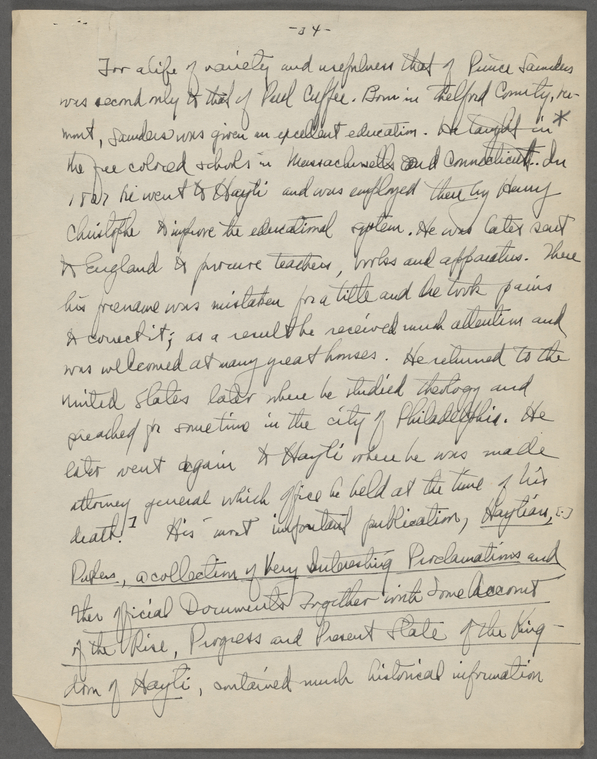 -34-
For a life of variety and usefulness that of Prince Saunders
was second only to that of Paul Cuffee. Born in Thetford County, Ver-
mont, Saunders was given an excellent education. He taught in*
the free colored schools in Massachusetts and Connecticut. In
1807 he went to Hayti and was employed there by Henry
Christophe to improve the educational system. He was later sent
to England to procure teachers, books and apparatus. There
his prename was mistaken for a title and he took pains
to correct it; as a result he received much attention and
was welcomed at many great houses. He returned to the
United States later where he studied theology and
preached for sometime in the city of Philadelphia. He
later went again to Hayti where he was made
attorney general which office he held at the time of his
death.1 His most important publication, Haytian,
Papers, a collection of Very Interesting Proclamations and
other official Documents Together with Some Account
of the Rise, Progress and Present State of the King-
dom of Hayti, contained much historical information